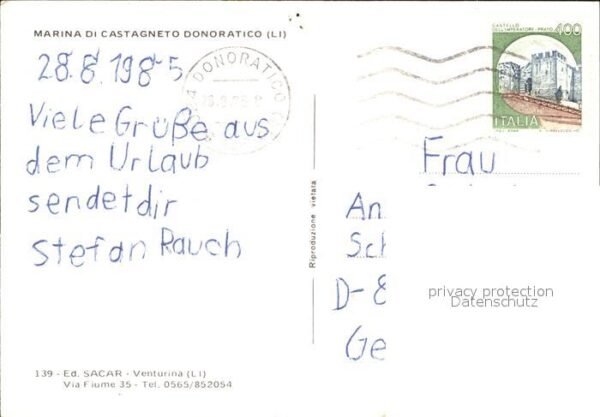 MARINA DI CASTAGNETO DONORATICO (LI)
28.8.1985
Viele Grüße aus
dem Urlaub
sendet dir
Stefan Rauch
139 - Ed. SACAR - Venturina (LI)
Via Fiume 35 - Tel. 0565/852054
Riproduzione vietata
DONORATICO
CASTELLO
DELL'IMPERATORE - PRATO
400
ITALIA
Frau
An
Sch
D-8
Ge
privacy protection
Datenschutz